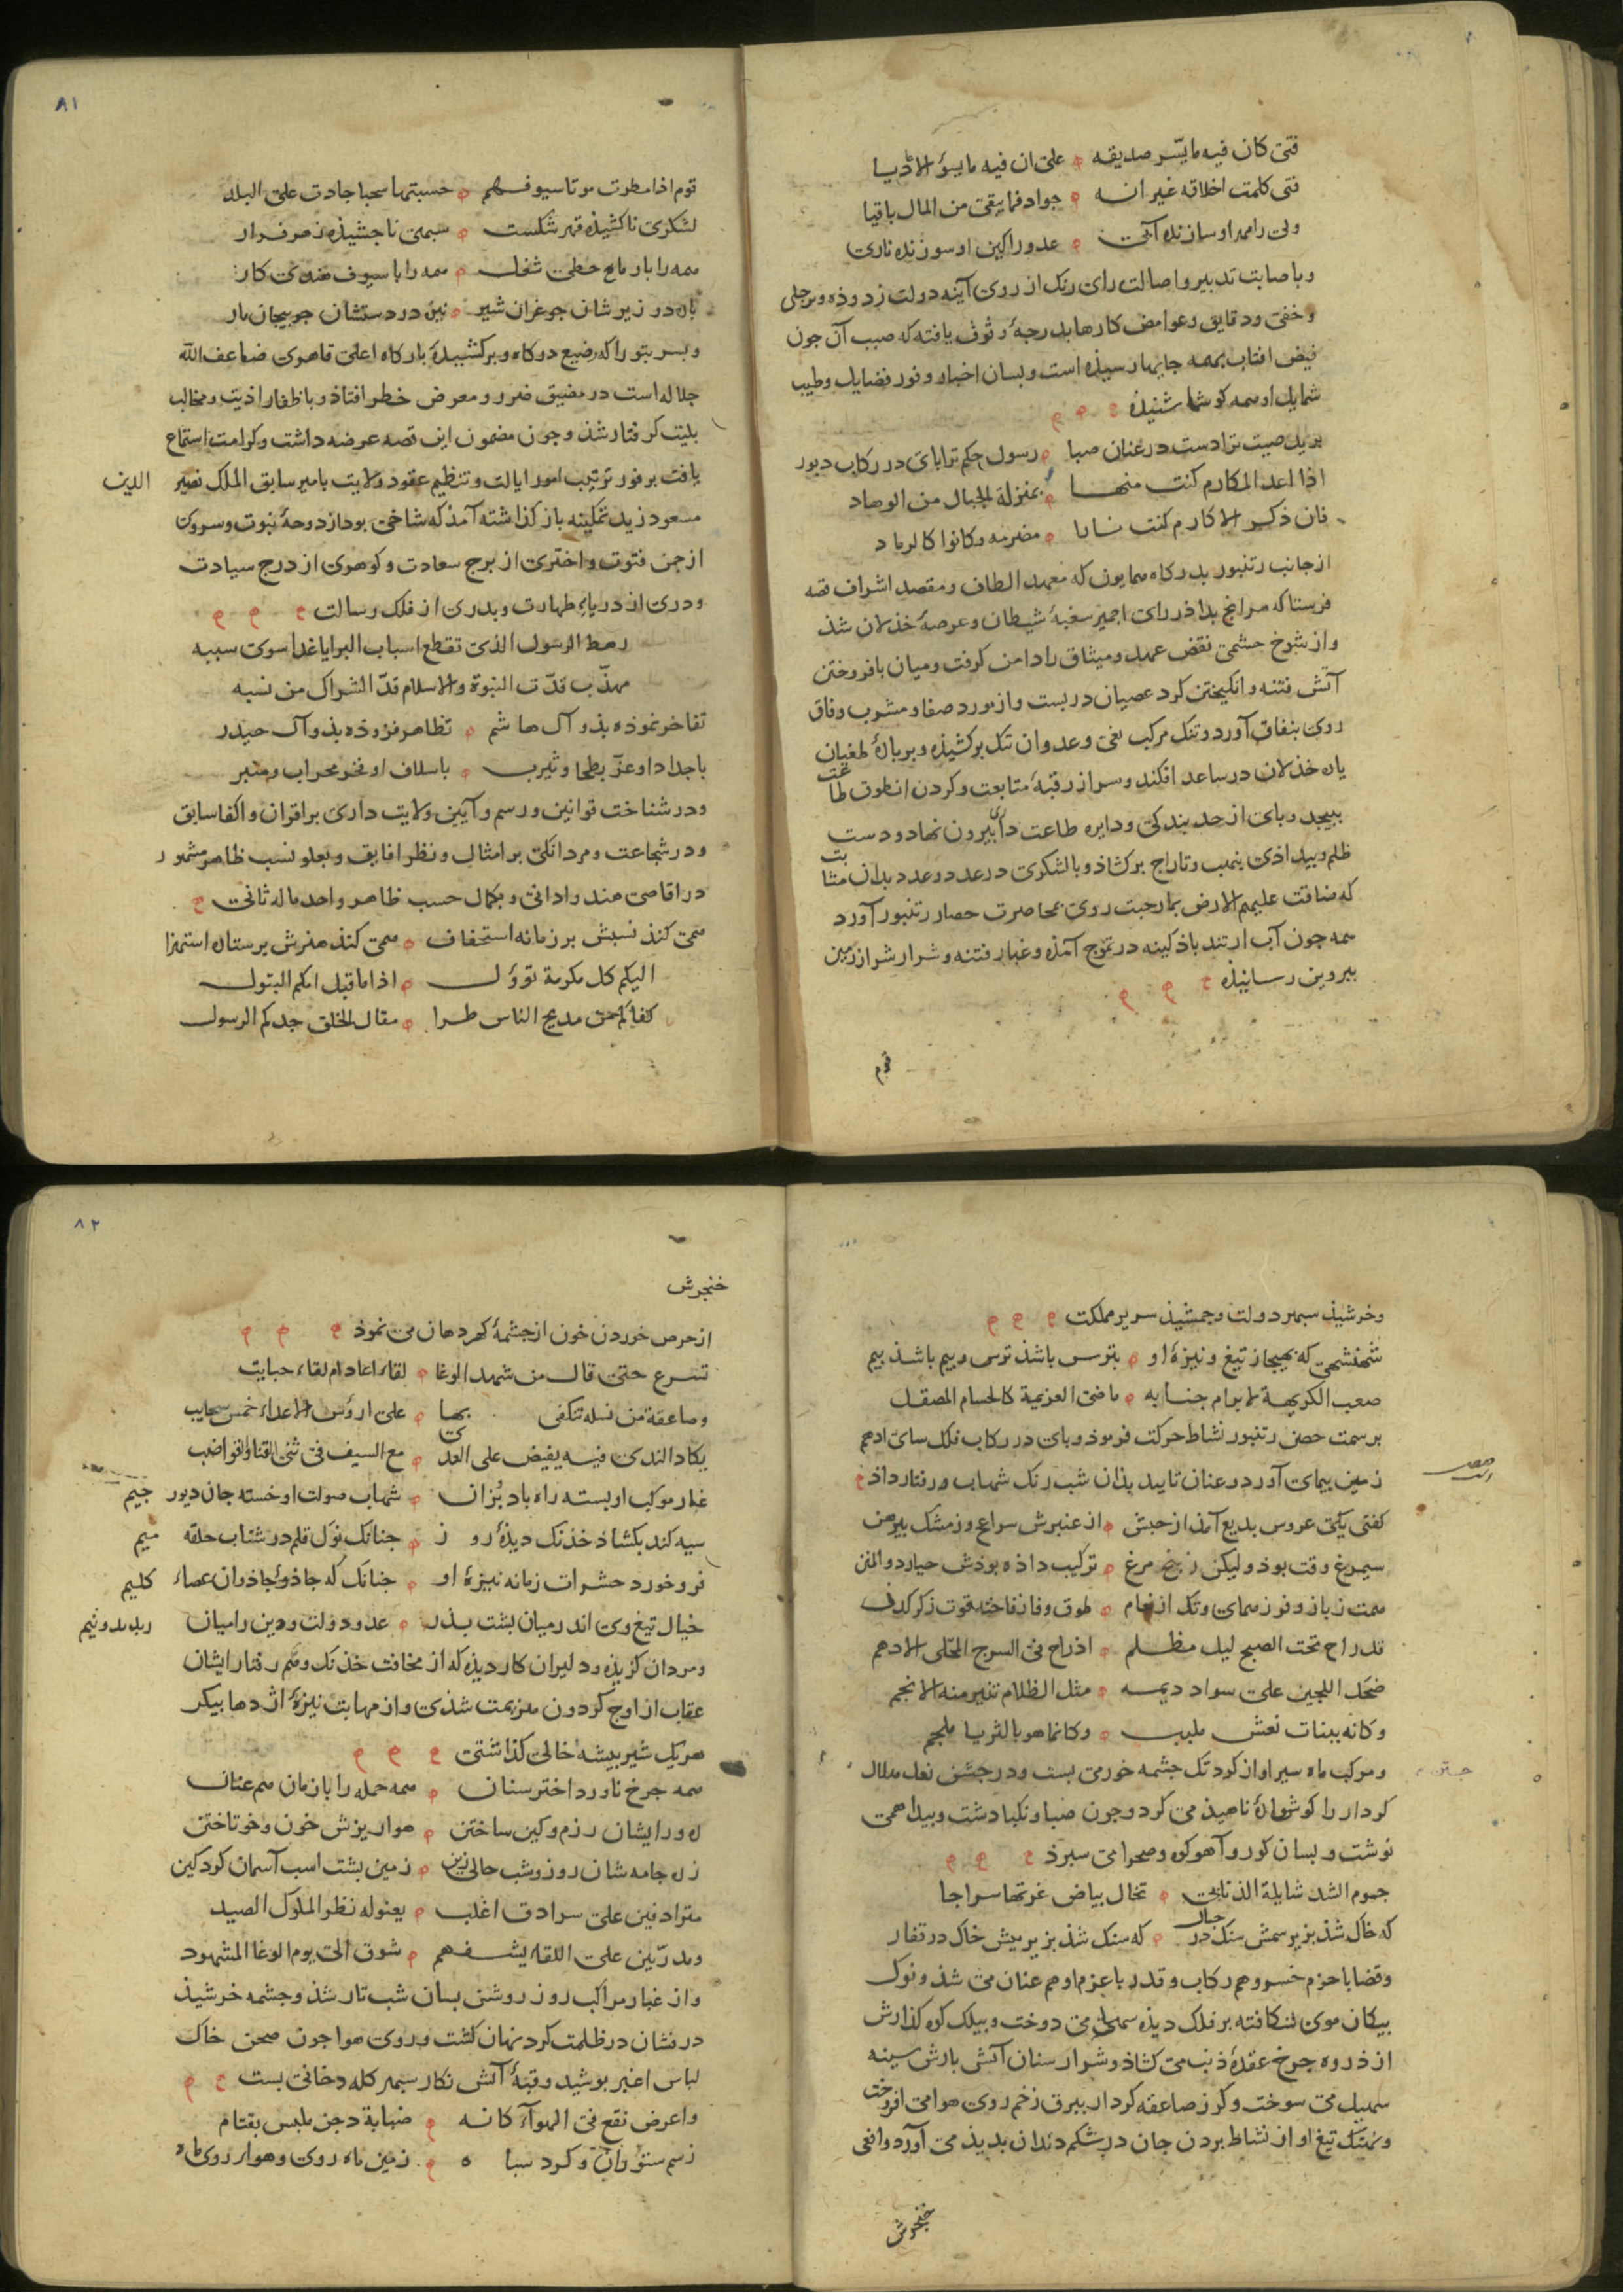 فتی کان فیه ما یسّر صدیقه ه علی ان فیه ما یسؤ الاعادیا
فتی کلمت اخلاقه غیر انه ه جواد فما یبقی من المال باقیا
ولی را مهر او سازنده آبی ه عدو را کین او سوزنده ناری
و باصابت تدبیر و اصالت رای رنک از روی آینه دولت زدوده و بر جلی
و خفی و دقایق و غوامض کارها بدرجهٔ وثوف یافته که صیت آن جون
فیض افتاب بهمه جایها رسیذه است و بسان اخبار وفور فضایل و طیب
شمایل او همه کوشها شنیذه
برید صیت ترا دست در عنان صبا ه رسول حکم ترا بای در رکاب دبور
اذا اعد المکارم کنت منها ه بمنزلة الجبال من الوهاد
فان ذکر الاکارم کنت نارا ه مضرمه وکانوا کالرماد
از جانب رتنبور بدرکاه همایون که معهد الطاف و مقصد اشراف قصه
فرستاکه هراج بداذر رای اجمیر سغبهٔ شیطان و عرصهٔ خذلان شذ
و از شوخ جشمی نقض عهد و میثاق را دامن کرفت و میان بافروختن
آتش فتنه و انکیختن کرد عصیان دربست و از مورد صفا و مشرب وفاق
روی بنفاق آورد و تنک مرکب بغی و عدوان تنک برکشیذه و بر بارهٔ طغیان
یاره خذلان در ساعد افکند و سر از رقبهٔ متابعت و کردن از طوق طاعت
ببیجد و بای از حد بندکی و دایره طاعت داری بیرون نهاد و دست
ظلم و بیداذی بنهب و تاراج برکشاذ و با لشکری در عدد و عدد بدان مثابت
که ضاقت علیهم الارض بما رحبت روی بمحاصرت حصار رتنبور آورد
همه جون آب از تند باذ کینه در تموج آمذه و غبار فتنه و شرار شر از زمین
ببروین رسانیذه
قوم
٨١
قوم اذا مطرت موتا سیوفهم ه حسبتها سحبا جادت علی البلد
لشکری ناکشیذه قهر شکست ه سبهی ناجشیذه زهر فرار
همه را با رماح خطی شغل ه همه را با سیوف هندی کار
باره در زیرشان جو غران شیر ه نیزه در دستشان جو بیجان مار
و بسر بتورا که رضیع درکاه و برکشیدهٔ بارکاه اعلی قاهری ضاعف الله
جلاله است در مضیق ضرر و معرض خطر افتاذ و باظفار اذیت و مخالب
بلیت کرفتار شذ و جون مضمون این قصه عرضه داشت و کرامت استماع
یافت بر فور ترتیب امور ایالت و تنظیم عقود ولایت بامیر سابق الملک نصیر الدین
مسعود زید تمکینه باز کذاشته آمذ که شاخی بود از دوحهٔ نبوت و سروی
از جمن فتوت و اختری از برج سعادت و کوهری از درج سیادت
و دری از دریاء طهارت و بدری از فلک رسالت
رهط الرسول الذی تقطع اسباب البرایا غدا سوی سببه
مهذّب قدّت النبوة والاسلام قدّ الشراک من نسبه
تفاخر نموذه بذو آل هاشم ه تظاهر فزوذه بذو آل حیدر
باجداد او عزّ بطحا و یثرب ه باسلاف او فخر محراب و منبر
و در شناخت قوانین و رسم و آیین ولایت داری بر اقران و اکفا سابق
و در شجاعت و مردانکی بر امثال و نظرا فایق و بعلو نسب ظاهر مشهور
در اقاصی هند و ادانی و بکمال حسب ظاهر واحد ماله ثانی
همی کنذ نسبش بر زمانه استخفاف ه همی کنذ هنرش بر ستاره استهزا
الیکم کل مکرمة توؤل ه اذا ما قیل امکم البتول
کفاکم من مدیح الناس طرا ه مقال الخلق جدکم الرسول
و خرشیذ سبهر دولت و جمشیذ سریر مملکت
شهنشهی که بهیجا ز تیغ و نیزهٔ او ه بترس باشذ ترس و ببیم باشذ بیم
صعب الکریهة لا یرام جنابه ه ماضی العزیمة کالحسام المصقل
بر سمت حصن رتنبور نشاط حرکت فرموذ و بای در رکاب فلک سای ادهم
زمین بیمای آورد و عنان تایید بذان شب رنک شهاب رفتار داذ
کفتی یکی عروس بدیع آمذ از حبش ه از عنبرش سراغج و ز مشک بیرهن
سیمرغ وقت بوذ و لیکن ز بهر مرغ ه ترکیب داذه بوذش
قد راح تحت الصبح لیل مظلم ه اذ راح فی السرج المحلی الادهم
ضحک اللجین علی سواد دیمسه ه مثل الظلام تنیر منه الانجم
وکانه ببنات نعش ملبب ه وکانما هو بالثریا ملجم
و مرکب ماه سیر او از کرد تک جشمه خور می بست و در جستن نعل هلال
کردار را کوشوارهٔ ناهیذ می کرد و جون صبا و نکبا دشت و بیدا همی
نوشت و بسان کور و آهو کوه و صحرا می سبرذ
جموم الشد شایلة الذنابی ه تخال بیاض غرتها سراجا
که خاک شذ بزیر سمش سنک در جبال ه که سنک شذ بزیر بیش خاک در قفار
و قضا با حزم خسرو هم رکاب و قدر با عزم او هم عنان می شذ و نوک
بیکان موی شکافته بر فلک دیذه سها می دوخت و بیلک کوه کذارش
از ذروه جرخ عقدهٔ ذنب می کشاذ و شرار سنان آتش بارش سینه
سهیل می سوخت و کرز صاعقه کردار ببرق زخم روی هوا می افروخت
و نهنک تیغ او از نشاط بردن جان در شکم دندان بدیذ می آورد و افعی
خنجرش
٨٢
خنجرش
از حرص خوردن خون از جشمهٔ کهر دهان می نموذ
تسرع حتی قال من شهد الوغا ه لقاء اعاد ام لقاء حبایب
وصاعقة من نصله تنکفی بها ه علی ارؤس الاعداء خمس سحایب
یکاد الندی فیه یفیض علی العدی ه مع السیف فی ثنی القنا والقواضب
غبار موکب او بسته راه باد بزان ه شهاب صولت او خسته جان دیو رجیم
سیه کند بکشاد خذنک دیذهٔ روز ه جنانک نوک قلم در شتاب حلقه میم
فرو خورد حشرات زمانه نیزهٔ او ه جنانک که جاذوی جاذوان عصاء کلیم
خیال تیغ وی اندر میان بشت بذر ه عدو دولت و دین را میان
و مردان کزیذه و دلیران کار دیذه که از مخافت خذنک وهم رفتار ایشان
عقاب از اوج کردون هزیمت شذی و از مهابت نیزهٔ اژدها بیکر
هر یک شیر بیشه خالی کذاشتی
همه جرخ ناورد اختر سنان ه همه حمله را با زمان هم عنان
ره و را ایشان رزم و کین ساختن ه هوا ریزش خون و خو تاختن
زره جامه شان روز و شب حالی زین ه زمین بشت اسب آسمان کرد کین
مترادفین علی سرادق اغلب ه یعنوله نظر الملوک الصید
ومدرّبین علی اللقاء یشفهم ه شوق الی یوم الوغا المشهود
و از غبار مراکب روز روشن بسان شب تار شذ و جشمه خرشیذ
درفشان در ظلمت کرد نهان کشت و روی هوا جون صحن خاک
لباس اغبر بوشید و قبهٔ آتش نکار سبهر کله دخانی بست
واعرض نقع فی الهوآء کانه ه ضبابة دجن ملبس بقتام
ز سم ستوران و کرد سباه ه زمین ماه روی و هوا روی ماه